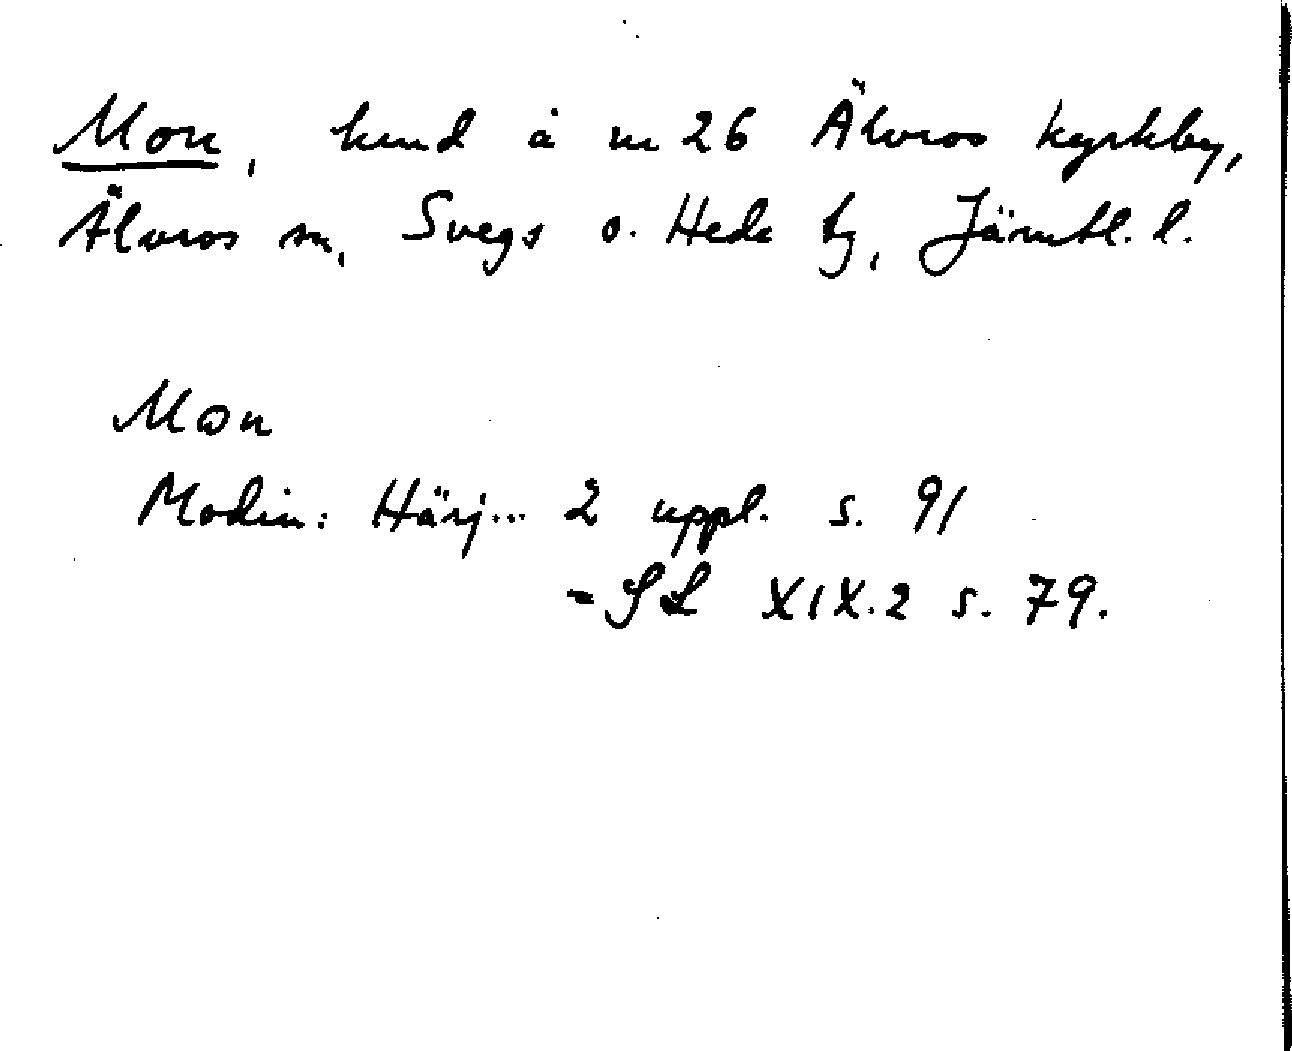 Mon, hmd å nr 26 Älvros kyrkby,
Älvros sn, Svegs o. Hede tg, Jämtl. l.
Mon
Modin: Härj... 2 uppl. s. 91
= SL XIX.2 s. 79.